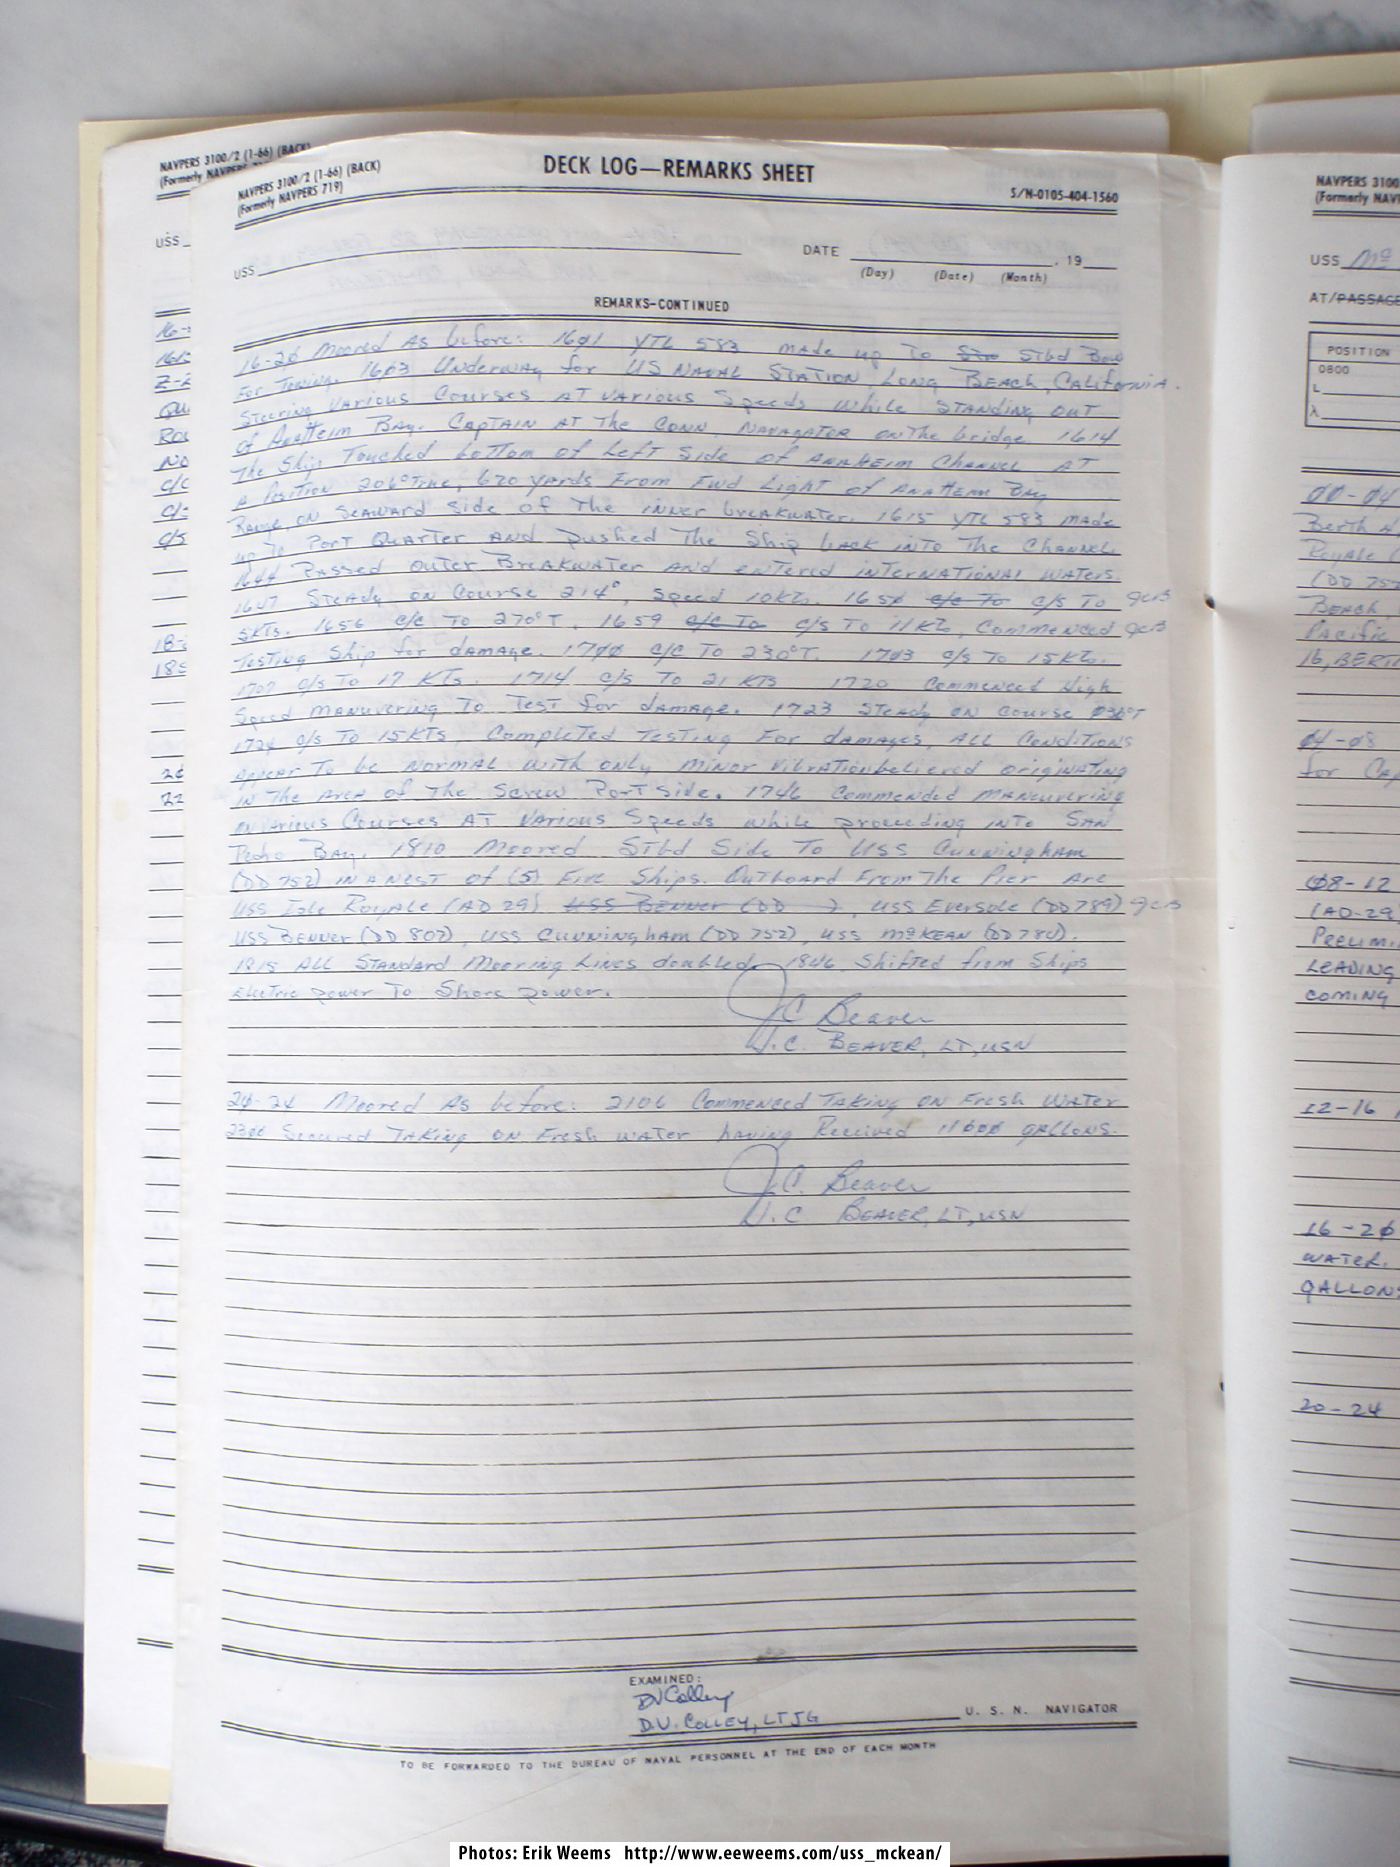 NAVPERS 3100/2 (1-66) (BACK)
(Formerly NAVPERS
USS
16-
NAVPERS 3100/2 (1-66) (BACK)
(Formerly NAVPERS 719)
DECK LOG—REMARKS SHEET
S/N-0105-404-1560
USS
DATE , 19
(Day) (Date) (Month)
REMARKS-CONTINUED
16-20 Moored As before: 1601 YTL 583 made up To Stbd Bow
For Towing. 1603 Underway for US NAVAL STATION, LONG BEACH, CALIFORNIA.
Steering Various Courses AT various Speeds while STANDING OUT
of Anaheim Bay. CAPTAIN AT The CONN, NAVAGATOR on The bridge. 1614
The Ship Touched bottom of Left Side of ANAHEIM CHANNEL AT
A Position 206°True, 620 yards From Fwd Light of Anaheim Bay
Range on Seaward side of The inner breakwater. 1615 YTL 583 made
up To Port Quarter AND pushed The Ship back into The Channel.
1644 Passed outer Breakwater And entered international waters.
1647 Steady on Course 214°, Speed 10KTs. 1650 c/c To c/s To JCB
5KTs. 1656 c/c To 270°T. 1659 c/c To c/s To 11KTs, Commenced JCB
Testing Ship for damage. 1700 c/c To 230°T. 1703 c/s To 15KTs.
1707 c/s To 17 KTs. 1714 c/s To 21 KTS 1720 Commenced High
Speed MANUVERING To Test for damage. 1723 Steady on course 030°T
1724 c/s To 15KTS, Completed Testing For damages, ALL Conditions
Appear To be Normal with only minor vibration believed originating
in The Area of The Screw Port Side. 1746 Commenced maneuvering
on various Courses AT Various Speeds while proceeding into San
Pedro Bay. 1810 Moored Stbd Side To USS Cunningham
(DD 752) IN A NEST of (5) Five Ships. Outboard From The Pier Are
USS Isle Royale (AD 29) USS BENNER (DD ), USS Eversole (DD 789) JCB
USS BENNER (DD 807), USS Cunningham (DD 752), USS McKEAN (DD 784).
1815 ALL Standard Mooring Lines doubled. 1846 Shifted from Ships
Electric power To Shore power.
JC Beaver
J.C. BEAVER, LT, USN
20-24 Moored As before: 2106 Commenced Taking on Fresh Water
2300 Secured Taking on Fresh water having Received 11000 gallons.
J.C. Beaver
J.C BEAVER, LT, USN
EXAMINED:
DV Colley
D.V. COLLEY, LTJG U. S. N. NAVIGATOR
TO BE FORWARDED TO THE BUREAU OF NAVAL PERSONNEL AT THE END OF EACH MONTH
NAVPERS 3100
(Formerly NAV
USS Mc
AT/PASSAGE
POSITION
0800
L
λ
00-04
Berth
Royale (
(DD 75
Beach
Pacific
16, BERT
04-08
for Ca
08-12
(AD-29
Prelimi
LEADING
coming
12-16
16-20
WATER.
GALLONS
20-24
Photos: Erik Weems http://www.eeweems.com/uss_mckean/